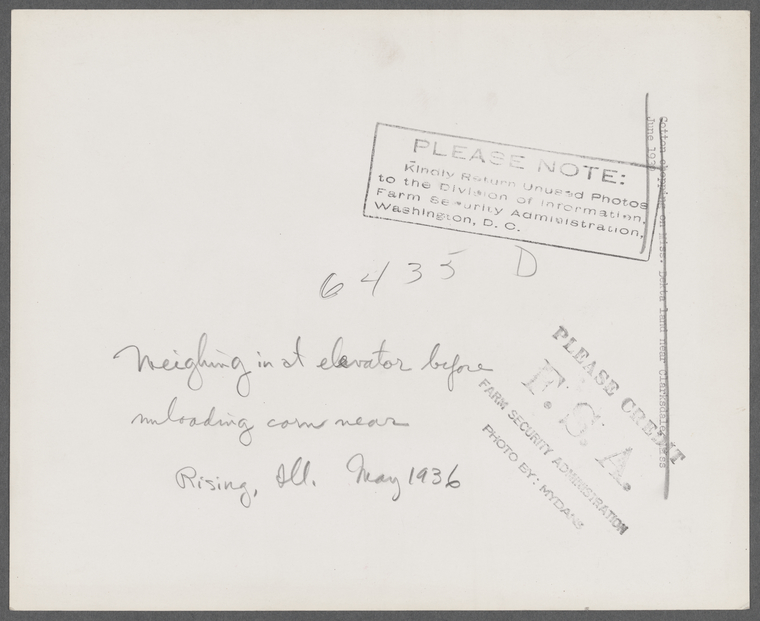 PLEASE NOTE:
Kindly Return Unused Photos
to the Division of Information,
Farm Security Administration,
Washington, D. C.
6435 D
Weighing in at elevator before
unloading corn near
Rising, Ill. May 1936
PLEASE CREDIT
F.S.A.
FARM SECURITY ADMINISTRATION
PHOTO BY: MYDANS
Cotton on Miss. Delta land near Clarksdale, Miss
June